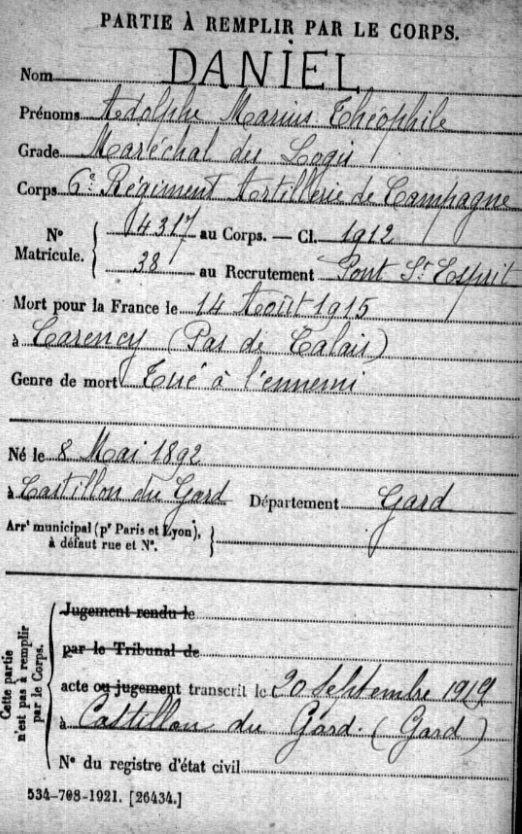 PARTIE À REMPLIR PAR LE CORPS.
Nom DANIEL
Prénoms Adolphe Marius Théophile
Grade Maréchal des Logis
Corps 6e Régiment Artillerie de Campagne
No Matricule. 4317 au Corps. — Cl. 1912
38 au Recrutement Pont St Esprit
Mort pour la France le 14 Août 1915
à Carency (Pas de Calais)
Genre de mort Tué à l'ennemi
Né le 8 Mai 1892
à Castillon du Gard Département Gard
Arrt municipal (pr Paris et Lyon),
à défaut rue et No.
Cette partie
n'est pas à remplir
par le Corps.
Jugement rendu le
par le Tribunal de
acte ou jugement transcrit le 20 Septembre 1919
à Castillon du Gard (Gard)
No du registre d'état civil
534-708-1921. [26434.]